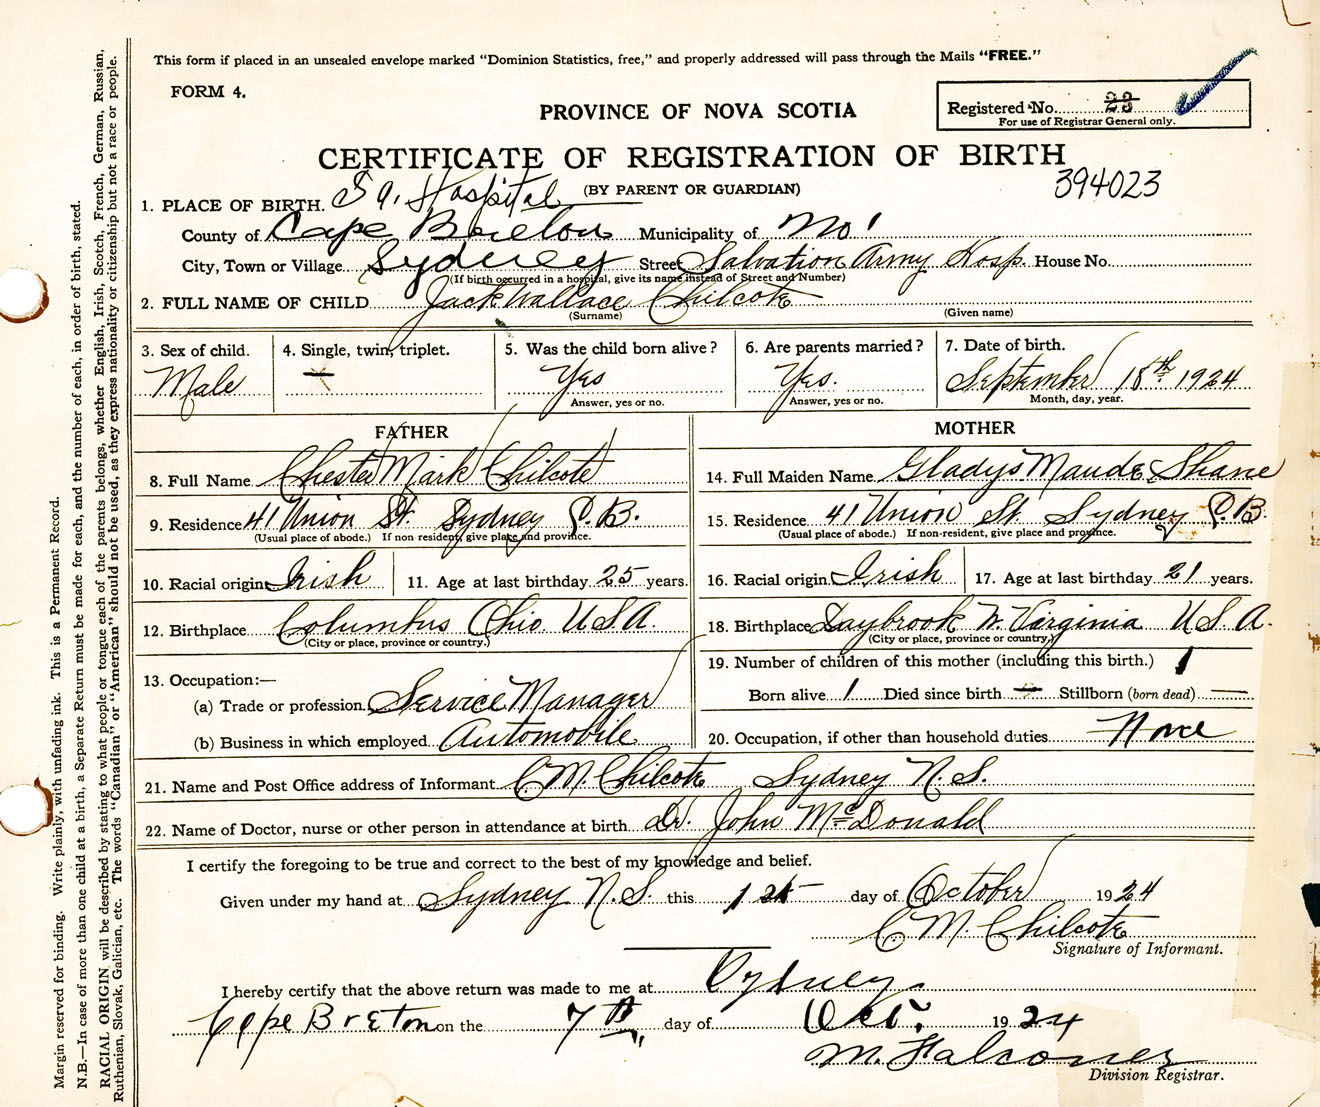 This form if placed in an unsealed envelope marked "Dominion Statistics, free," and properly addressed will pass through the Mails "FREE."
FORM 4.
PROVINCE OF NOVA SCOTIA
Registered No. 23
For use of Registrar General only.
CERTIFICATE OF REGISTRATION OF BIRTH
(BY PARENT OR GUARDIAN)
394023
1. PLACE OF BIRTH. S A. Hospital
County of Cape Breton Municipality of
City, Town or Village Sydney Street Salvation Army Hosp. House No.
(If birth occurred in a hospital, give its name instead of Street and Number)
2. FULL NAME OF CHILD Jack Wallace Chilcote
(Surname) (Given name)
3. Sex of child. 4. Single, twin, triplet. 5. Was the child born alive? 6. Are parents married? 7. Date of birth.
Male — Yes Yes. September 18th 1924
Answer, yes or no. Answer, yes or no. Month, day, year.
FATHER MOTHER
8. Full Name Chester Mark Chilcote 14. Full Maiden Name Gladys Maude Shane
9. Residence 41 Union St. Sydney C.B. 15. Residence 41 Union St Sydney C.B.
(Usual place of abode.) If non-resident, give place and province. (Usual place of abode.) If non-resident, give place and province.
10. Racial origin Irish 11. Age at last birthday 25 years. 16. Racial origin Irish 17. Age at last birthday 21 years.
12. Birthplace Columbus Ohio USA. 18. Birthplace Saybrook W. Virginia U.S.A.
(City or place, province or country.) (City or place, province or country.)
19. Number of children of this mother (including this birth.) 1
13. Occupation:—
(a) Trade or profession Service Manager Born alive 1 Died since birth — Stillborn (born dead) —
(b) Business in which employed Automobile 20. Occupation, if other than household duties None
21. Name and Post Office address of Informant C. M. Chilcote Sydney N.S.
22. Name of Doctor, nurse or other person in attendance at birth Dr. John McDonald
I certify the foregoing to be true and correct to the best of my knowledge and belief.
Given under my hand at Sydney N.S. this 1st day of October 1924
C. M. Chilcote
Signature of Informant.
I hereby certify that the above return was made to me at Sydney
Cape Breton on the 7th day of Oct. 1924
M. Falconer
Division Registrar.
Margin reserved for binding. Write plainly, with unfading ink. This is a Permanent Record.
N.B.—In case of more than one child at a birth, a Separate Return must be made for each, and the number of each, in order of birth, stated.
RACIAL ORIGIN will be described by stating to what people or tongue each of the parents belongs, whether English, Irish, Scotch, French, German, Russian,
Ruthenian, Slovak, Galician, etc. The words "Canadian" or "American" should not be used, as they express nationality or citizenship but not a race or people.